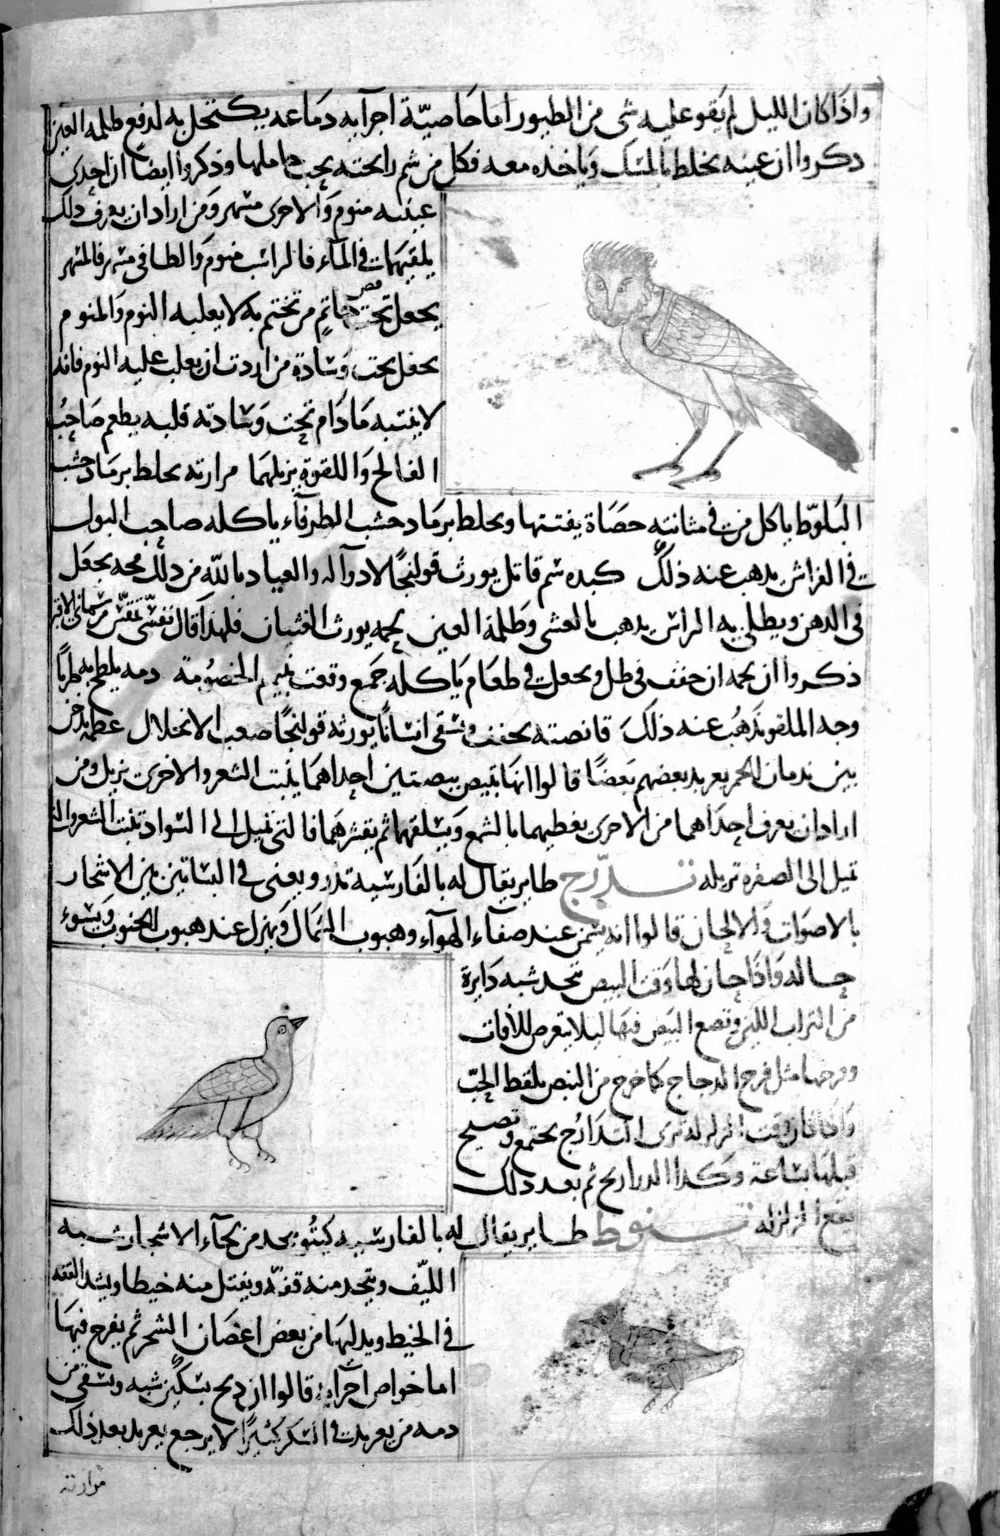 واذا كان الليل لم يقو عليه شى من الطيور اما خاصية اجزآيه دماغه يكتحل به لدفع ظلمه العين
ذكروا ان عينه يخلط بالمسك وياخذه معه فكل من شم رايحته يحب حاملها وذكروا ايضا ان احدى
عينيه منوم والاخرى مسهر ومن اراد ان يعرف ذلك
يلقيهما فى المآء فالراسب منوم والطافى مسهر فالمسهر
يجعل تحت فص خاتم من تختم به لا يغلبه النوم والمنوم
يجعل تحت وسادة من اردت ان يغلب عليه النوم فانه
لا ينتبه ما دام تحت وسادته قلبه يطعم صاحب
الفالج واللقوة يزيلهما مرارته يخلط برماد خشب
البلوط ياكل من فى مثانته حصاة يفتتها ويخلط برماد خشب الطرفآء ياكله صاحب البول
فى الفراش يذهب عنه ذلك كبده سم قاتل يورث قولنجا لا دوآ له والعياذ بالله من ذلك مخه يجعل
فى الدهن ويطلى به الراس يذهب بالعشى وظلمة العين لحمه يورث الغثيان فلهذا قال
ذكروا ان لحمه ان جفف فى ظل وجعل فى طعام ياكله جمع وقعت بينهم الخصومة دمه يلطخ به طريا
وجه الملقو يذهب عنه ذلك قانصته يجفف ويسقى انسانا يورثه قولنجا صعب الانحلال عظمه يدخن
بين ندمان الخمر يعربد بعضهم بعضا قالوا انها تبيض بيضتين احداهما ينبت الشعر والاخرى يزيل ومن
اراد ان يعرف احداهما من الاخرى يغطيهما بالشمع ويسلقهما ثم يقشرهما فالتى تميل الى السواد تنبت الشعر والتى
تميل الى الصفرة تزيله تدرج طاير يقال له بالفارسية تدرو ويغنى فى البساتين بين الاشجار
بالاصوات والالحان قالوا انه يسمن عند صفآء الهوآء وهبوب الشمال ويهزل عند هبوب الجنوب ويسوء
حاله واذا حان لها وقت البيض تتخذ شبه دايرة
من التراب اللين وتضع البيض فيها ليلا يتعرض للافات
وفرخها مثل فرخ الدجاج كما خرج من البيض يلقط الحب
واذا كان وقت الزلزله ترى التدارج يجتمع وتصيح
قبلها بساعة وكذا الدراريج ثم بعد ذلك
يقع الزلزله تنوط طاير يقال له بالفارسية يتخذ من لحآء الاشجار شبه
الليف ويتخذ منه قفة ويفتل منه خيطا ويشد القفه
فى الخيط ويدليها من بعض اغصان الشجر ثم يفرخ فيها
اما خواص اجزآيه قالوا ان ذبح بسكين شبه ويسقى من
دمه من يعربد فى السكر كثيرا لا يرجع يعربد بعد ذلك
مرارته